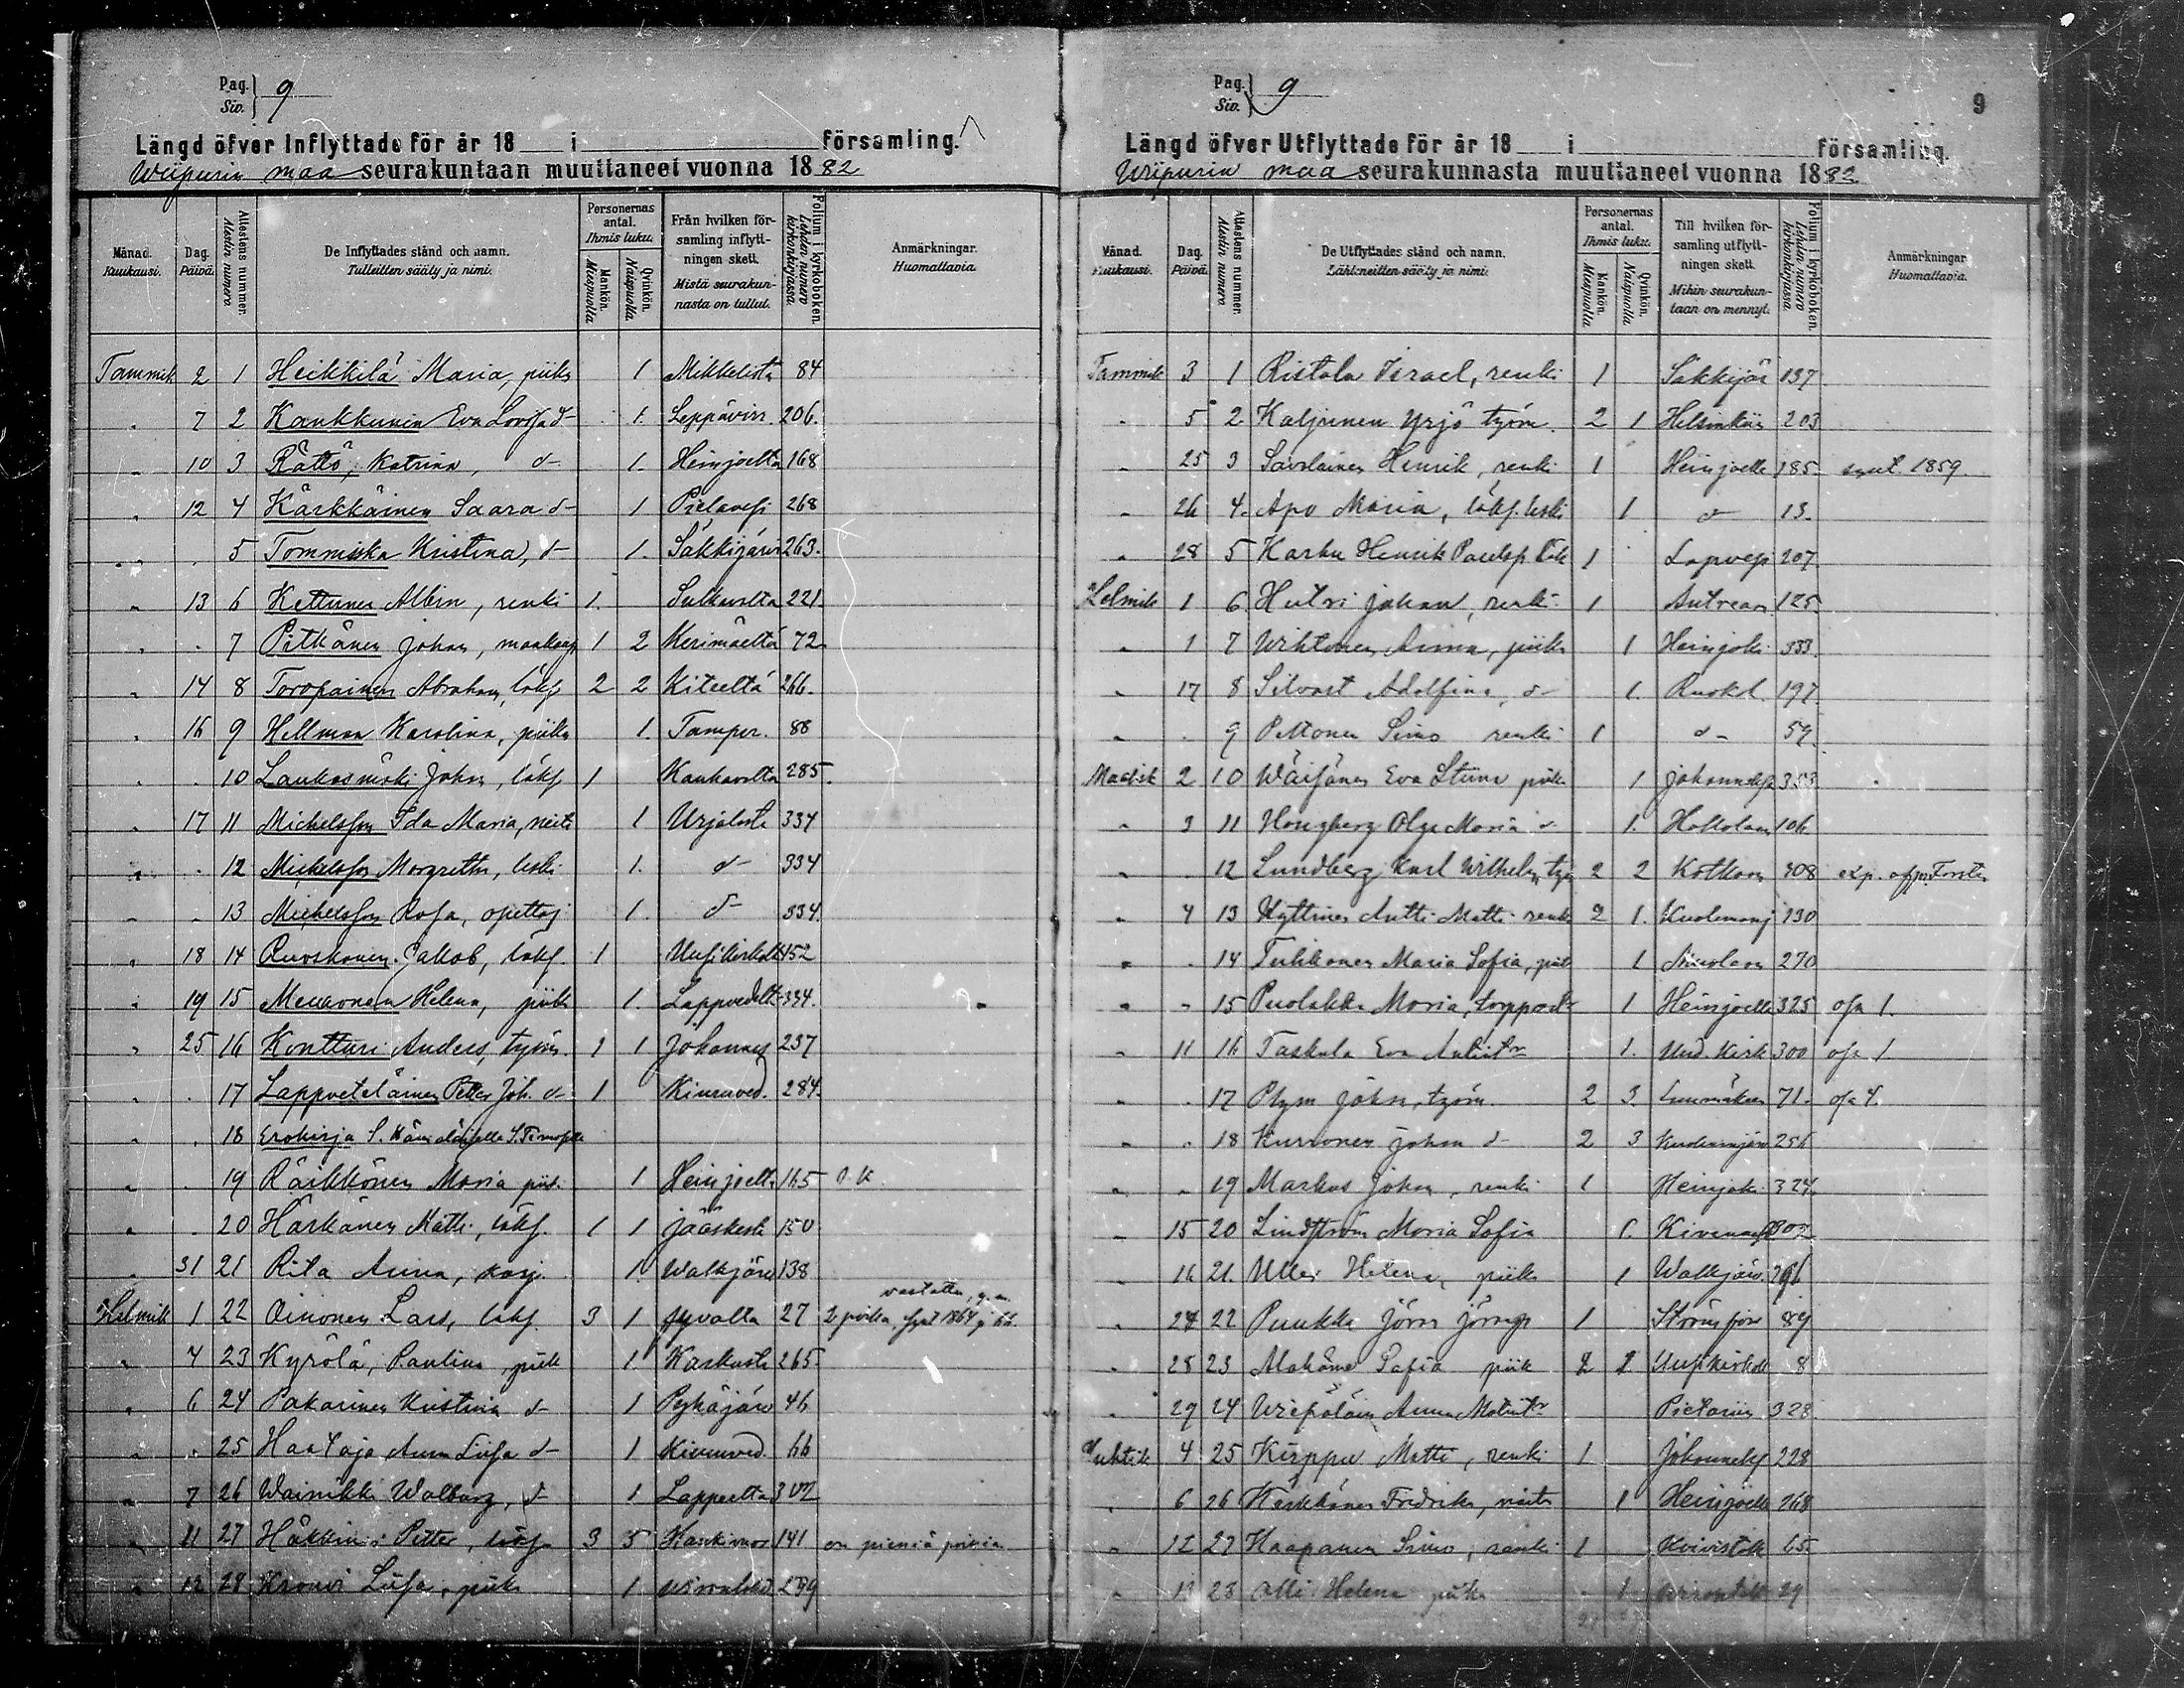 Pag. Siv. 9
Längd öfver Inflyttade för år 18 i församling.
Wiipurin maa seurakuntaan muuttaneet vuonna 1882
Månad. Kuukausi. Dag. Päivä. Attestens nummer. Alestin numero. De Inflyttades stånd och namn. Tulleitten sääty ja nimi. Personernas antal. Ihmis luku. Mankön. Miespuolia Qvinkön. Naispuolia Från hvilken församling inflyttningen skett. Mistä seurakunnasta on tullut. Folium i kyrkoboken. Lehden numero kirkonkirjassa. Anmärkningar. Huomattavia.
Tammik 2 1 Heikkilä Maria, piika 1 Mikkelista 84
" 7 2 Kankkunen Eva Lovisa d- 1. Leppävirr. 206.
" 10 3 Rättö, Katrina, d- 1. Heinjoelta 168
" 12 4 Kärkkäinen Saara d- 1 Pielavesi 268
" . 5 Tommiska Kristina, d- 1. Säkkijärvi 263.
" 13 6 Kettunen Albin, renki 1. Sulkavalta 221.
" . 7 Pitkänen Johan, maakaup 1 2 Kerimäeltä 72
" 14 8 Toropainen Abraham, läks 2 2 Kiteeltä 266.
" 16 9 Hellman Karolina, piika 1. Tamper. 88
" . 10 Laukasmäki Johan, läks 1 Kauhavalta 285.
" 17 11 Michelsson Ida Maria, neiti 1 Urjalasta 334
" . 12 Michelsson Margretha, leski 1. d- 334
" . 13 Michelsson Rosa, opettaj 1. d- 334.
" 18 14 Ruoskanen Jakob, läks. 1 Uusikirkolt 452
" 19 15 Meuronen Helena, piika 1. Lappvedelt 334.
" 25 16 Kontturi Anders, työm. 1 1 Johannes 237
" . 17 Lappveteläinen Petter Joh. d- 1 Kiuruved. 284.
" . 18 Erokirja
" . 19 Räikkönen Maria piik. 1 Heinjoelta 165 r.k.
" . 20 Härkänen Matti, läks. 1 1 Jääskestä 150
" 31 21 Rita Anna, karj. 1. Walkjärv 138
Helmik 1 22 Oinonen Lars, läks. 3 1 27 2 poikaa, synt 1864 ja 66.
" 4 23 Kyrölä, Paulina, piik 1 265
" 6 24 Pakarinen Kristina d- 1 Pyhäjärv 46
" . 25 Haataja Anna Liisa d- 1 Kiuruved. 66
" 7 26 Wainikka Walborg, d- 1 Lappeelta 302
" 11 27 Häkkinen Petter, läks 3 5 141 on pieniä poikia
" 12 28 Liisa, piika 1
Pag. Siv. 9
9
Längd öfver Utflyttade för år 18 i församling.
Wiipurin maa seurakunnasta muuttaneet vuonna 1882
Månad. Kuukausi. Dag. Päivä. Attestens nummer. Alestin numero. De Utflyttades stånd och namn. Lähteneitten sääty ja nimi. Personernas antal. Ihmis luku. Mankön. Miespuolia Qvinkön. Naispuolia Till hvilken församling utflyttningen skett. Mihin seurakuntaan on mennyt. Folium i kyrkoboken. Lehden numero kirkonkirjassa. Anmärkningar Huomattavia.
Tammik 3 1 Ristola Israel, renki 1 Säkkijär 137
" 5 2. Kaljunen Yrjö työm. 2 1 Helsinkiin 203
" 25 3 Savolainen Henrik, renki 1 Heinjoelle 185 synt. 1859.
" 26 4. Apo Maria, läks. leski 1 d- 13.
" 28 5 Karhu Henrik Paulsp läk 1 Lapvesi 207
Helmik 1 6 Hutri Johan, renki 1 Antrean 125
" 1 7 Wihtonen Anna, piika 1 Heinjoki 333.
" 17 8 Silvast Adolfina, d- 1. Ruokol. 197
" . 9 Peltonen Simo renki 1 d- 59.
Maalisk 2 10 Wäisänen Eva Stiina piika 1 Johanneksa 353
" 3 11 Hougberg Olga Maria d- 1. Hollolaan 106
" . 12 Lundberg Karl Wilhelm, työ 2 2 Kotkaan 408
" 4 13 Hyttinen Antti Matti renki 2 1. Kuolemaj 130
" . 14 Tulikonen Maria Sofia, piik 1 270
" " 15 Puolakka Maria, torppar 1 Heinjoella 325 ofa 1.
" 11 16 Taskula Eva Antint:r 1. Uud. Kirk 300 ofa 1
" . 17 Plym Johan, työm. 2 3. Luumäkeen 71. ofa 4.
" . 18 Kurronen Johan d- 2 3 Kuolemajär 256
" " 19 Markus Johan, renki 1 Heinjoki 324.
" 15 20 Lindström Maria Sofia 1. Kivennapa 302
" 16 21. Helena, piika 1 Walkjärv. 296
" 24 22 Puukka Jöran Jöransp 1 Strömsfors 89
" 28 23 Sofia piik 2 2 Uusikirkolle 8
" 29 24 Anna Matint:r Pietariin 328
Huhtik 4 25 Kirppu Matti, renki 1 Johanneks 228
" 6 26 Kärkkäinen Fredrika, neiti 1 Heinjoelle 268
" 12 27 Haapanen Simo, renki 1 Koivistolle 65.
" 13 28 Alli Helena piika 1 29